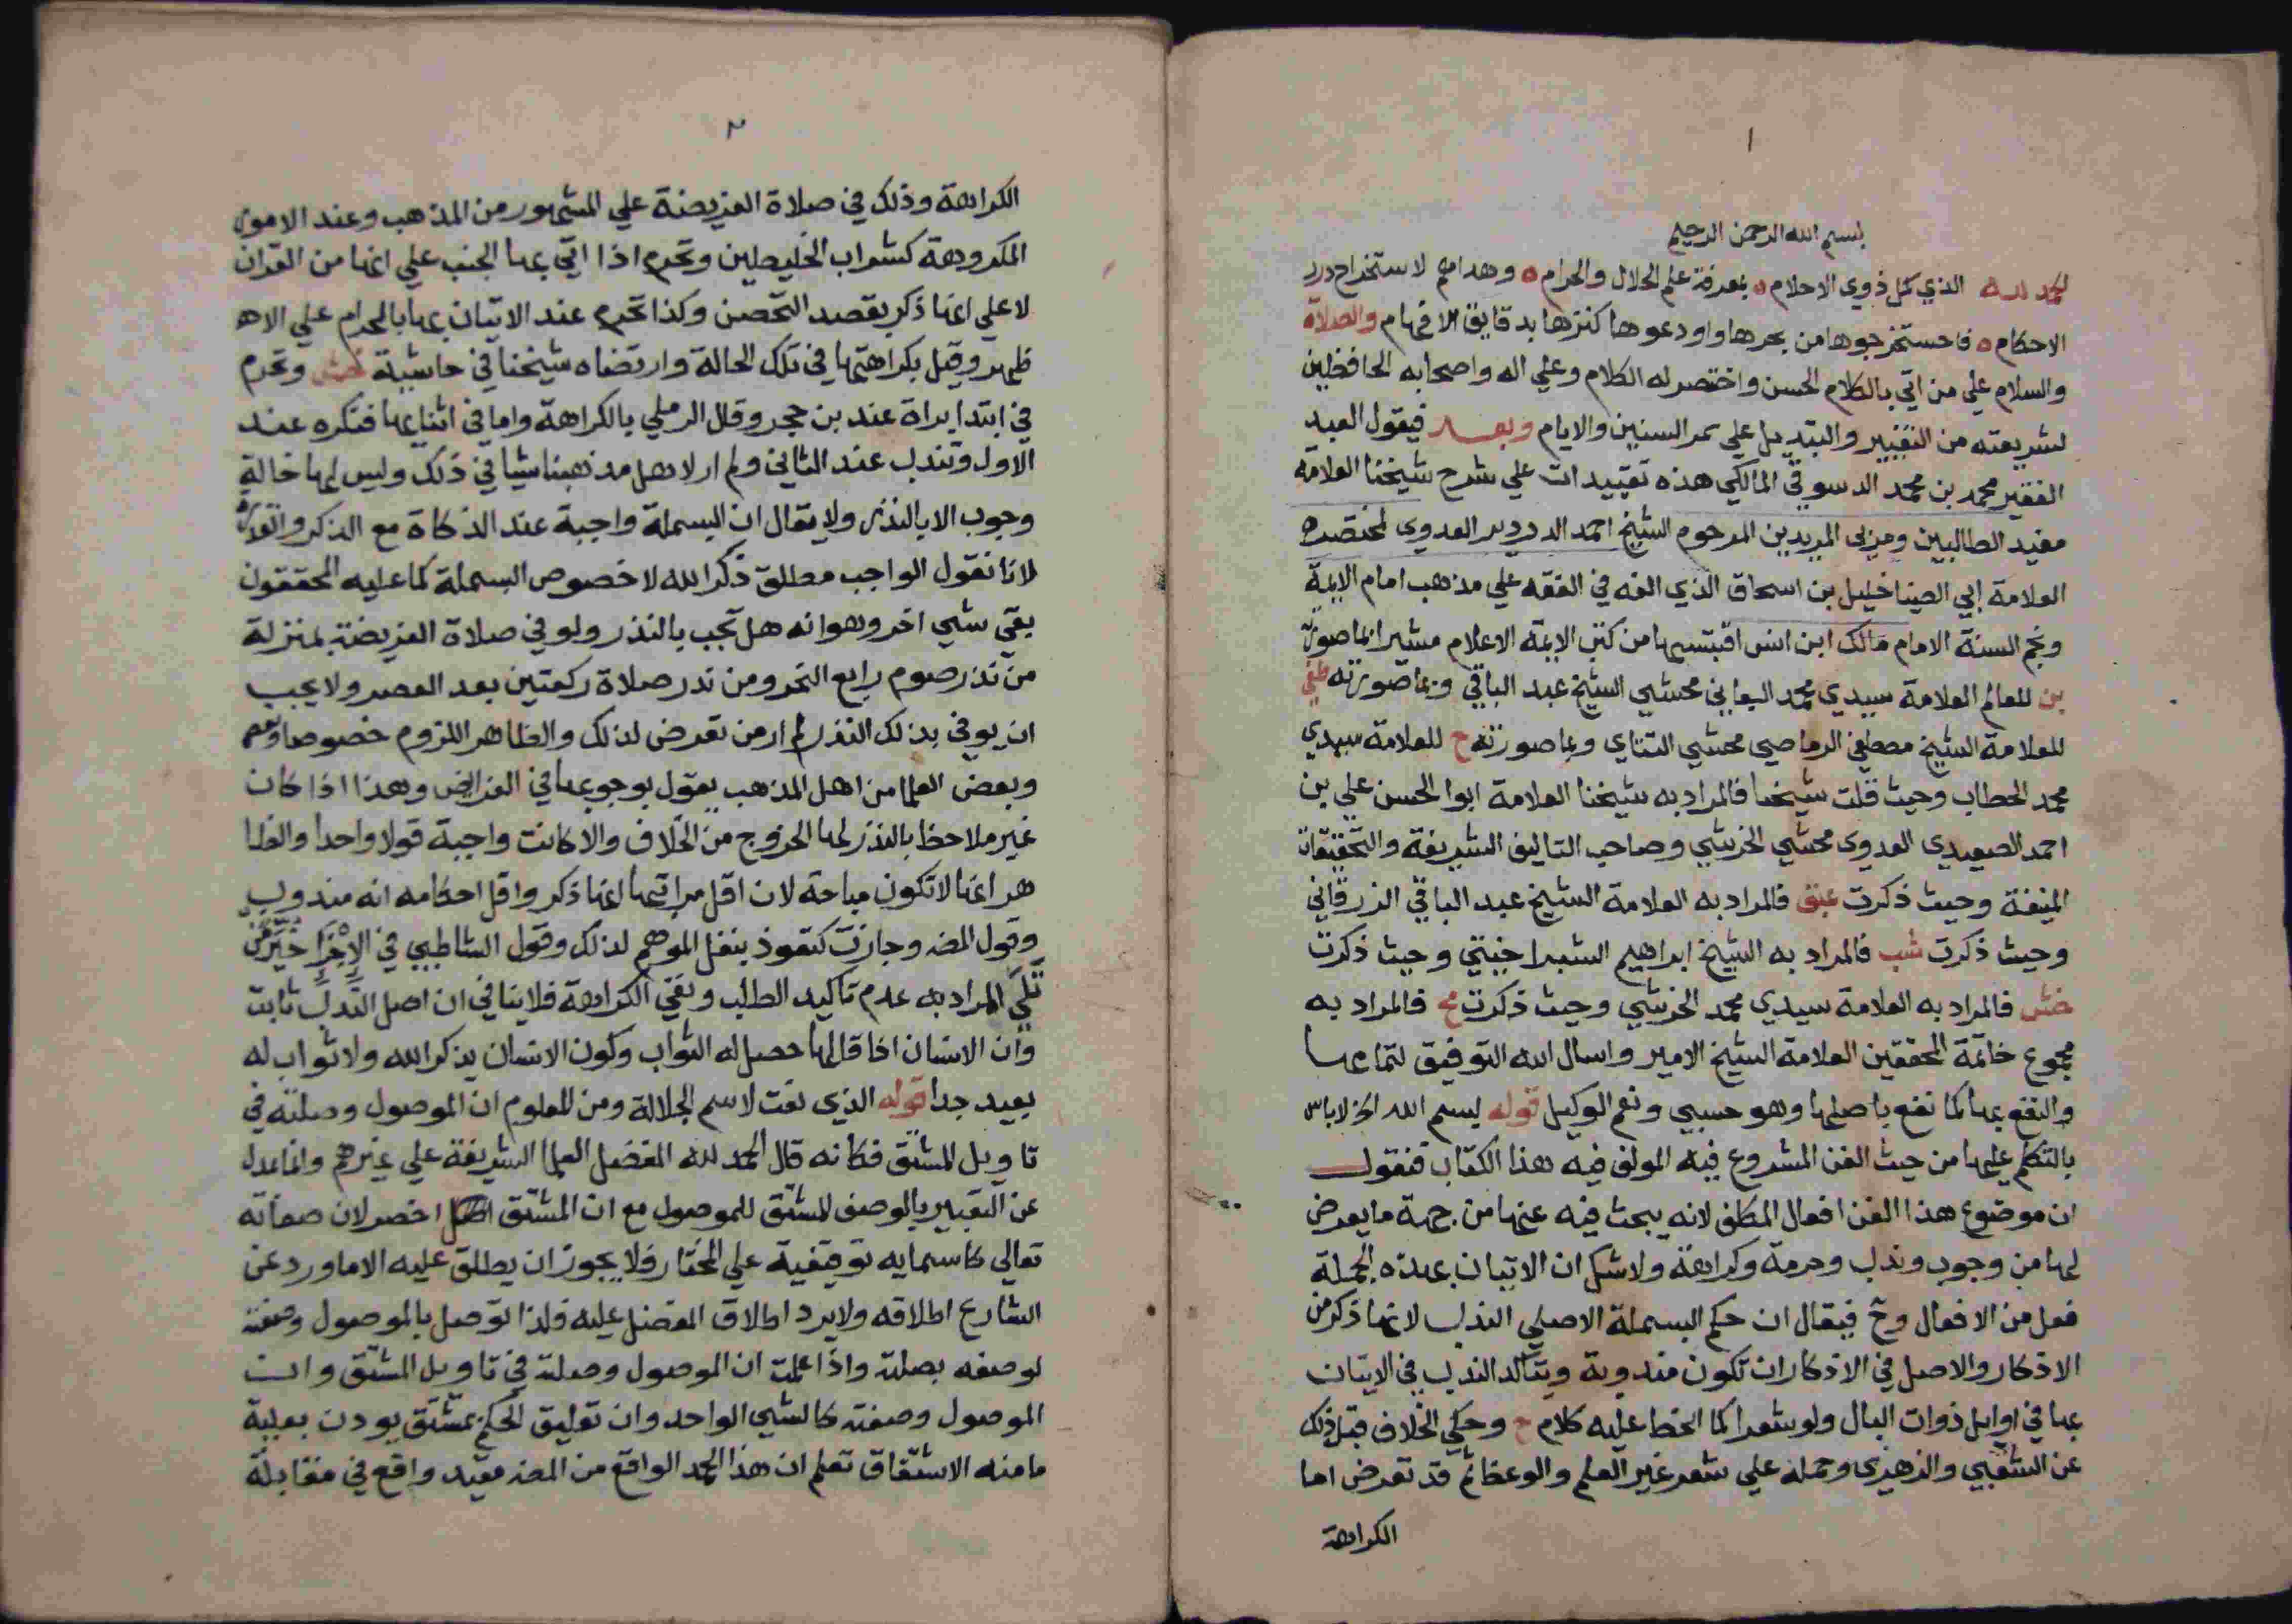 ١
بسم الله الرحمن الرحيم
الحمد لله الذي كمل ذوي الاحلام بمعرفة علم الحلال والحرام وهداهم لاستخراج درر
الاحكام فاستخرجوها من بحرها واودعوها كنزها بدقايق الافهام والصلاة
والسلام علي من اتي بالكلام الحسن واختصر له الكلام وعلي اله واصحابه الحافظين
لشريعته من التغيير والتبديل علي ممر السنين والايام وبعد فيقول العبد
الفقير محمد بن محمد الدسوقي المالكي هذه تقييدات علي شرح شيخنا العلامة
مفيد الطالبين ومربي المريدين المرحوم الشيخ احمد الدردير العدوي لمختصره
العلامة ابي الضيا خليل بن اسحاق الذي الفه في الفقه علي مذهب امام الايمة
ونجم السنة الامام مالك ابن انس اقتبستها من كتب الايمة الاعلام مشيرا بما صورته
بن للعالم العلامة سيدي محمد البناني محشي الشيخ عبد الباقي وبما صورته طفي
للعلامة الشيخ مصطفي الرماصي محشي التتاي وبما صورته ح للعلامة سيدي
محمد الحطاب وحيث قلت شيخنا فالمراد به شيخنا العلامة ابوا الحسن علي بن
احمد الصعيدي العدوي محشي الخرشي وصاحب التاليف الشريفة والتحقيقات
المنيفة وحيث ذكرت عبق فالمراد به العلامة الشيخ عبد الباقي الزرقاني
وحيث ذكرت شب فالمراد به الشيخ ابراهيم الشبراخيتي وحيث ذكرت
خش فالمراد به العلامة سيدي محمد الخرشي وحيث ذكرت مج فالمراد به
مجموع خاتمة المحققين العلامة الشيخ الامير واسال الله التوفيق لتمامها
والنفع بها كما نفع باصلها وهو حسبي ونعم الوكيل قوله بسم الله الخ لاباس
بالتكلم عليها من حيث الفن المشروع فيه المولف فيه هذا الكتاب فنقول
ان موضوع هذا الفن افعال المكلف لانه يبحث فيه عنها من جهة ما يعرض
لها من وجوب وندب وحرمة وكراهة ولاشك ان الاتيان بهذه الجملة
فعل من الافعال وح فيقال ان حكم البسملة الاصلي الندب لانها ذكر من
الاذكار والاصل في الاذكار ان تكون مندوبة ويتاكد الندب في الاتيان
بها في اوايل ذوات البال ولو شعرا كما انحط عليه كلام ح وحكي الخلاف قبل ذلك
عن الشعبي والزهري وحمله علي شعر غير العلم والوعظ ثم قد تعرض لها
الكراهة
٢
الكراهة وذلك في صلاة الفريضة علي المشهور من المذهب وعند الامور
المكروهة كشراب الخليطين وتحرم اذا اتي بها الجنب علي انها من القران
لا علي انها ذكر بقصد التحصن وكذا تحرم عند الاتيان بها بالحرام علي الاظ
ظهر وقيل بكراهتها في تلك الحالة وارتضاه شيخنا في حاشية خش وتحرم
في ابتدا براة عند بن حجر وقال الرملي بالكراهة واما في اثنايها فتكره عند
الاول وتندب عند الثاني ولم ار لاهل مذهبنا شيا في ذلك وليس لها حالة
وجوب الا بالنذر ولا يقال ان البسملة واجبة عند الذكاة مع الذكر والقدرة
لانا نقول الواجب مطلق ذكر الله لا خصوص البسملة كما عليه المحققون
بقي شي اخر وهو انه هل تجب بالنذر ولو في صلاة الفريضة بمنزلة
من نذر صوم رابع النحر ومن نذر صلاة ركعتين بعد العصر ولا يجب
ان يوفي بذلك النذر لم ار من تعرض لذلك والظاهر اللزوم خصوصا
وبعض العلما من اهل المذهب يقول بوجوبها في الفرايض وهذا اذا كان
غير ملاحظ بالنذر لها الخروج من الخلاف والا كانت واجبة قولا واحدا والظا
هر انها لا تكون مباحة لان اقل مراتبها انها ذكر واقل احكامه انه مندوب
وقول المصـ وجازت كتعوذ بنفل الموهم لذلك وقول الشاطبي في الاجزا خير من
تلا المراد به عدم تاكيد الطلب ونفي الكراهة فلا ينافي ان اصل الندب ثابت
وان الانسان اذا قالها حصل له الثواب وكون الانسان يذكر الله ولا ثواب له
بعيد جدا قوله الذي نعت لاسم الجلالة ومن المعلوم ان الموصول وصلته في
تاويل المشتق فكانه قال الحمد لله المفضل العلما الشريفة علي غيرهم وانما عدل
عن التعبير بالوصف المشتق للموصول مع ان المشتق اخصر لان صفاته
تعالي كاسمايه توقيفية علي المختار فلا يجوز ان يطلق عليه الا ما ورد عن
الشارع اطلاقه ولا يرد اطلاق المفضل عليه فلذا توصل بالموصول وصفته
لوصفه بصلته واذا علمت ان الموصول وصلته في تاويل المشتق وان
الموصول وصفته كالشي الواحد وان تعليق الحكم بمشتق يوذن بعلية
ما منه الاشتقاق تعلم ان هذا الحمد الواقع من المصـ مقيد واقع في مقابلة